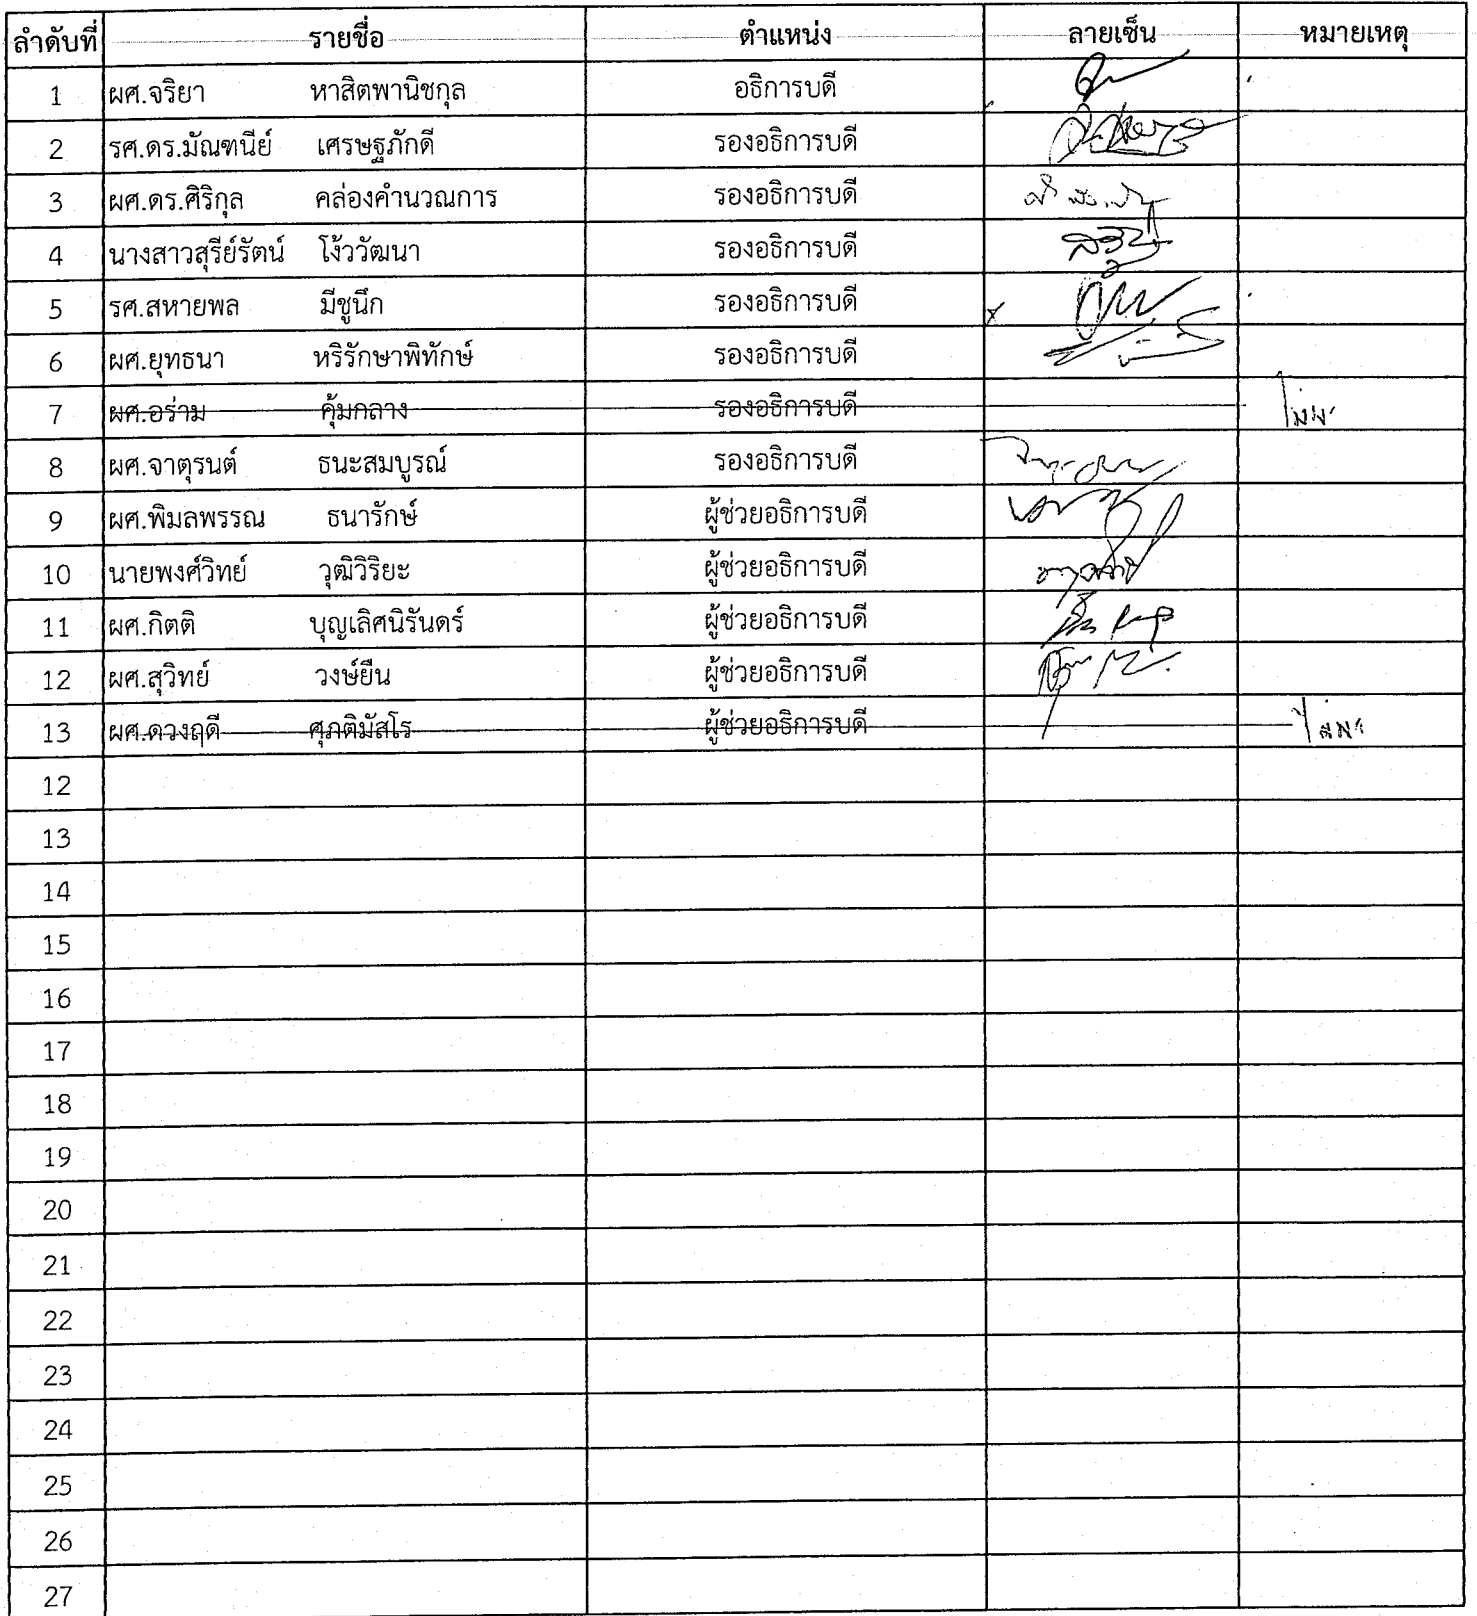 ลำดับที่ รายชื่อ ตำแหน่ง ลายเซ็น หมายเหตุ
1 ผศ.จริยา หาสิตพานิชกุล อธิการบดี
2 รศ.ดร.มัณฑนีย์ เศรษฐภักดี รองอธิการบดี
3 ผศ.ดร.ศิริกุล คล่องคำนวณการ รองอธิการบดี
4 นางสาวสุรีย์รัตน์ โง้ววัฒนา รองอธิการบดี
5 รศ.สหายพล มีชูนึก รองอธิการบดี
6 ผศ.ยุทธนา หริรักษาพิทักษ์ รองอธิการบดี
7 ผศ.อร่าม คุ้มกลาง รองอธิการบดี ไม่มา
8 ผศ.จาตุรนต์ ธนะสมบูรณ์ รองอธิการบดี
9 ผศ.พิมลพรรณ ธนารักษ์ ผู้ช่วยอธิการบดี
10 นายพงศ์วิทย์ วุฒิวิริยะ ผู้ช่วยอธิการบดี
11 ผศ.กิตติ บุญเลิศนิรันดร์ ผู้ช่วยอธิการบดี
12 ผศ.สุวิทย์ วงษ์ยืน ผู้ช่วยอธิการบดี
13 ผศ.ดวงฤดี ศุภติมัสโร ผู้ช่วยอธิการบดี ไม่มา
12
13
14
15
16
17
18
19
20
21
22
23
24
25
26
27